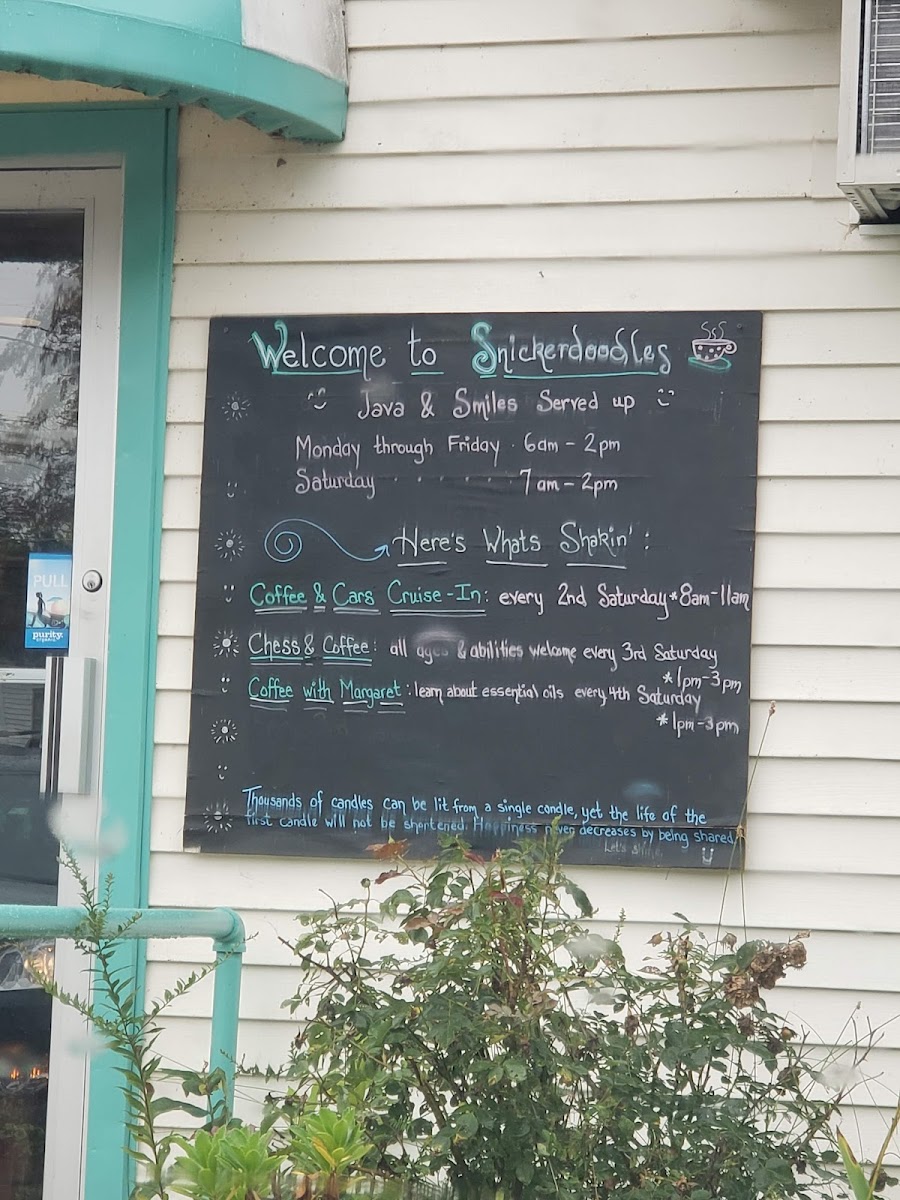 Welcome to Snickerdoodles
Java & Smiles Served up
Monday through Friday · 6am - 2pm
Saturday · · · · · · 7am - 2pm
Here's Whats Shakin':
Coffee & Cars Cruise-In: every 2nd Saturday*8am-11am
Chess & Coffee: all ages & abilities welcome every 3rd Saturday
*1pm-3pm
Coffee with Margaret: learn about essential oils every 4th Saturday
*1pm-3pm
Thousands of candles can be lit from a single candle, yet the life of the
first candle will not be shortened. Happiness never decreases by being shared.
Let's
PULL
purity.
organic